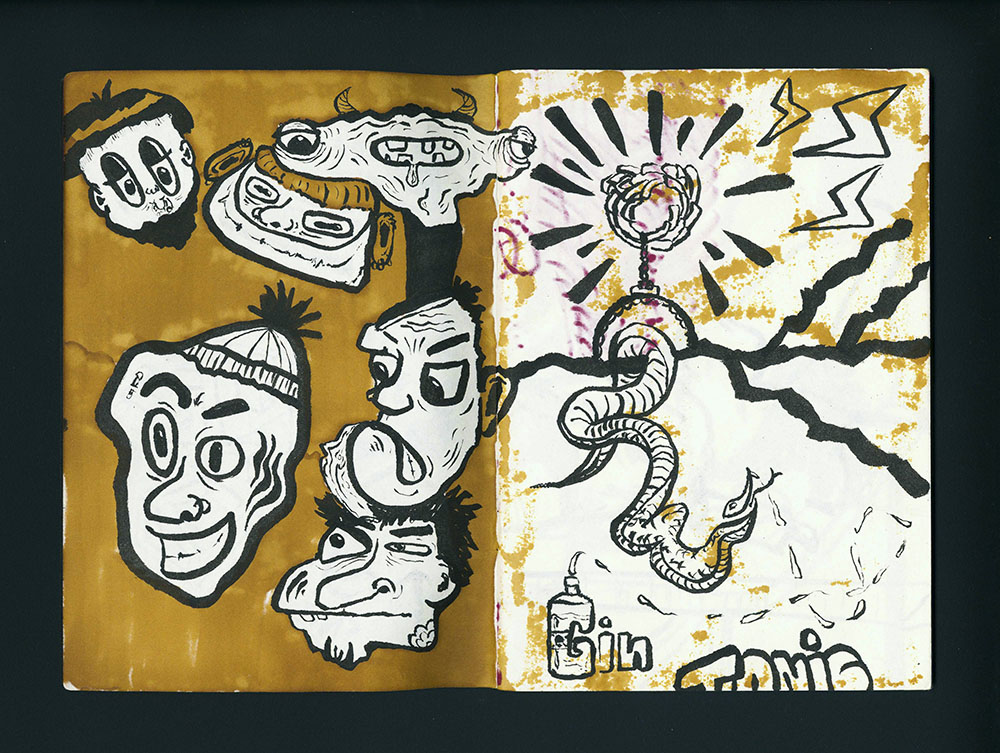 Gin
TONIC